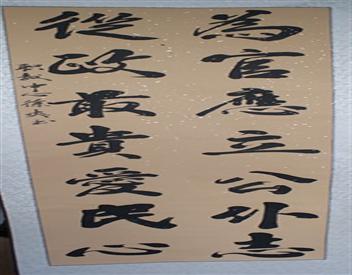 為官應立公仆志
從政最貴愛民心